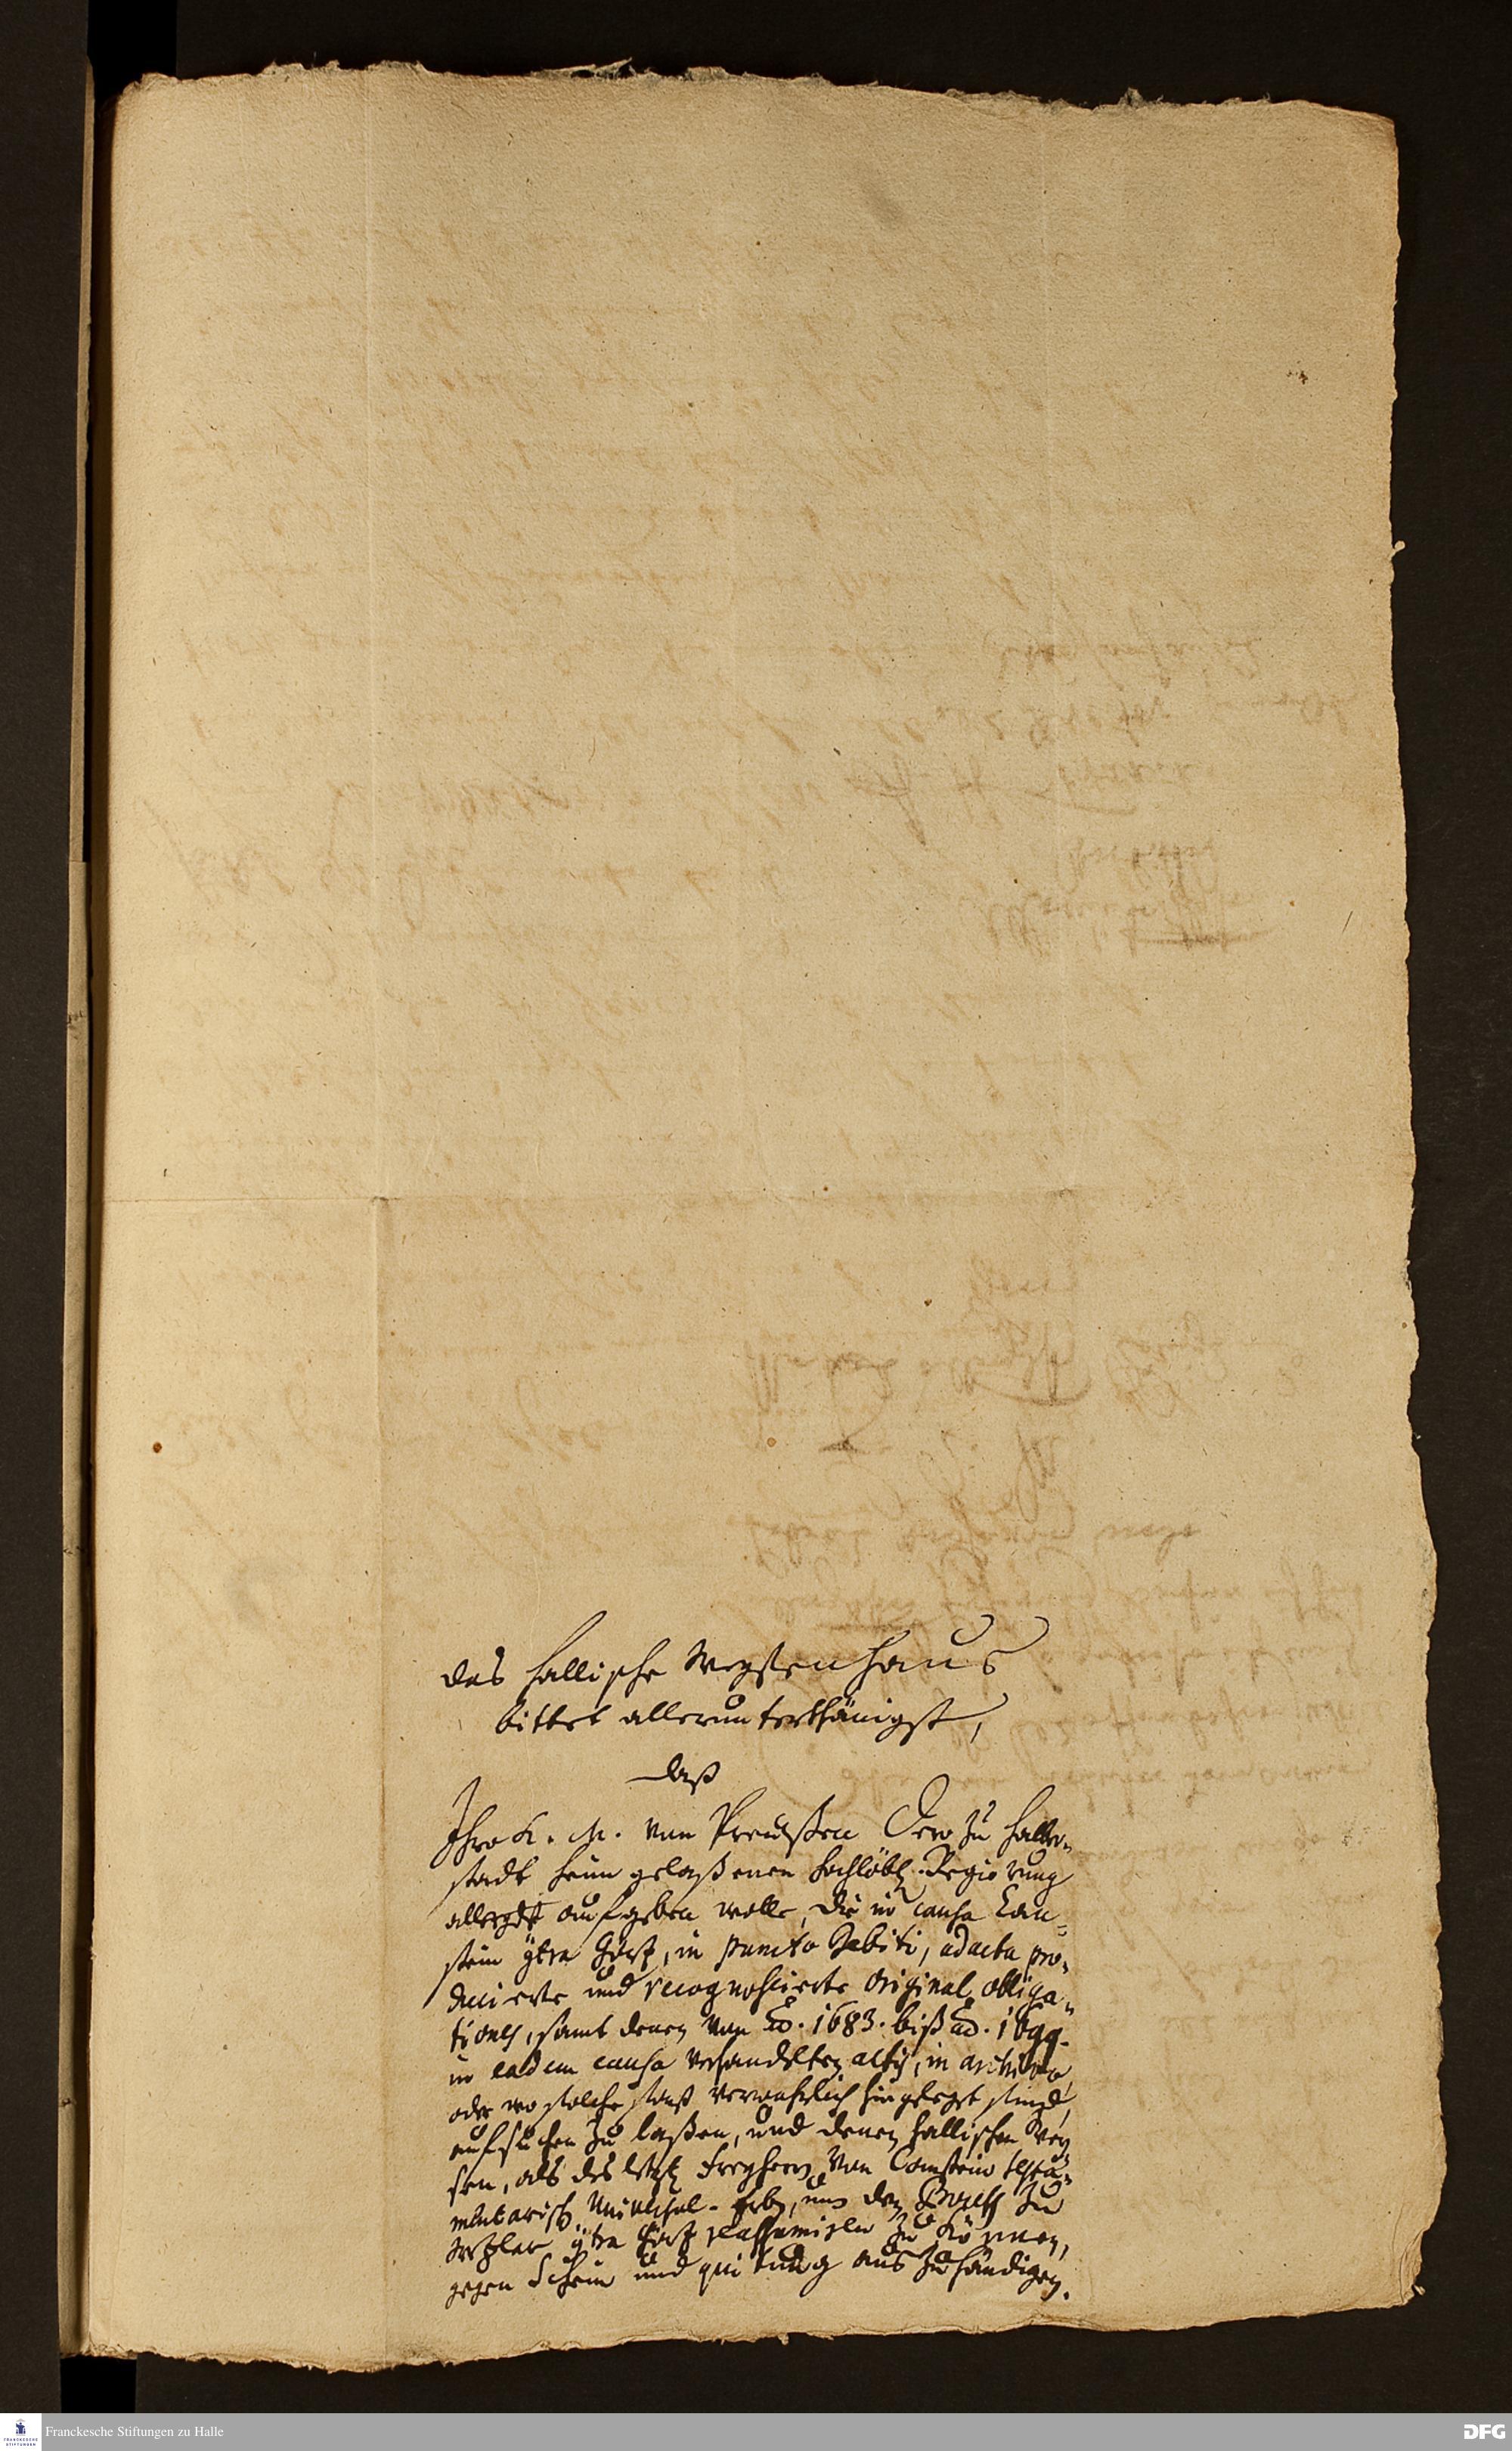 das Hallische Weysenhaus
bittet allerunterthänigst,
daß
Ihro K. M. von Preußen Dero zu Halber-
stadt heim gelaßenen hochlöbl. Regierung
allergdst aufgeben wolle, die in causa Can-
stein ctra Görtz, in puncto debiti, ad acta pro-
ducirte und recognoscirte Original obliga-
tiones, samt denen von ao. 1683. biß ao. 1699.
in eadem causa verhandelten actis, in archivo,
oder wo solche sonst verwahrlich hingeleget sind,
aufsuchen zu laßen, und denen Hallischen Wey-
sen, als des letzt. Freyherrn von Canstein testa-
mentarisch. Universal-Erben, um den Proceß zu
Wetzlar ctra Görtz reassumiren zu können,
gegen Schein und quitung aus zu händigen.
Franckesche Stiftungen zu Halle
DFG